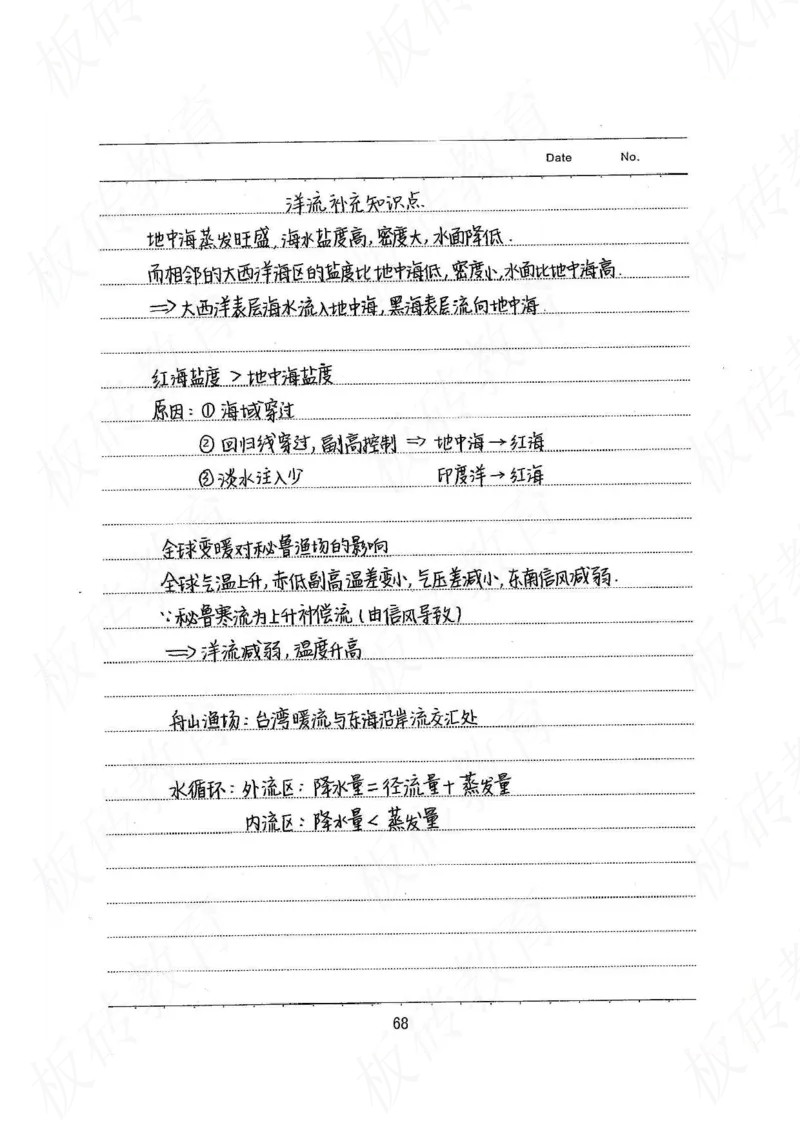 Date No.
洋流补充知识点.
地中海蒸发旺盛,海水盐度高,密度大,水面降低.
而相邻的大西洋海区的盐度比地中海低,密度小,水面比地中海高.
⇒大西洋表层海水流入地中海,黑海表层流向地中海.
红海盐度 > 地中海盐度
原因:① 海域穿过
② 回归线穿过,副高控制 ⇒ 地中海→红海
③ 淡水注入少 印度洋→红海
全球变暖对秘鲁渔场的影响
全球气温上升,赤低副高温差变小,气压差减小,东南信风减弱.
∵秘鲁寒流为上升补偿流(由信风导致)
⇒洋流减弱,温度升高
舟山渔场:台湾暖流与东海沿岸流交汇处
水循环:外流区:降水量=径流量+蒸发量
内流区:降水量<蒸发量
68
板砖教育